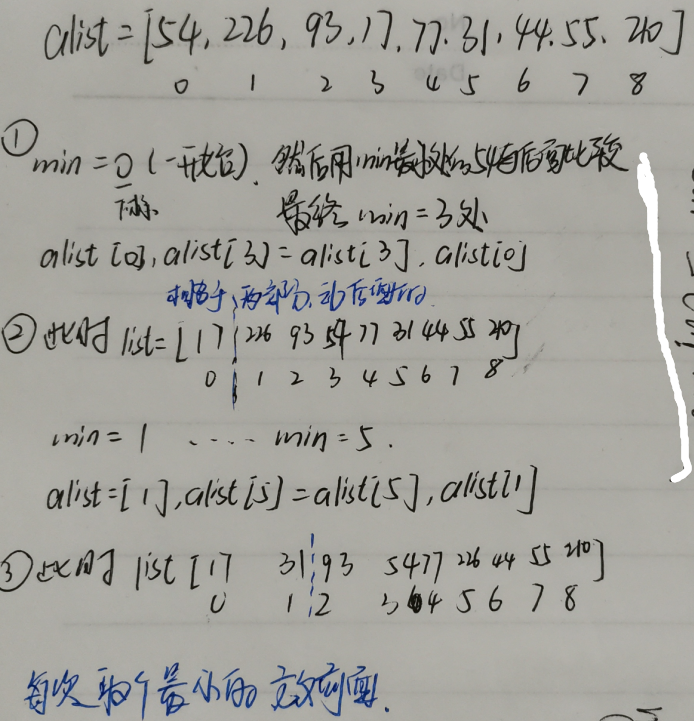 alist = [54, 226, 93, 17, 77, 31, 44, 55, 210]
0 1 2 3 4 5 6 7 8
① min = 0 (一开始). 然后用min最小处的54与后面比较
下标 最终 min = 3处
alist [0], alist[3] = alist[3], alist[0]
相当于两部分, 动后面的
② 此时 list = [17 226 93 54 77 31 44 55 210]
0 1 2 3 4 5 6 7 8
min = 1 ····· min = 5.
alist = [1], alist[5] = alist[5], alist[1]
③ 此时 list [17 31 93 54 77 226 44 55 210]
0 1 2 3 4 5 6 7 8
每次取个最小的放前面.